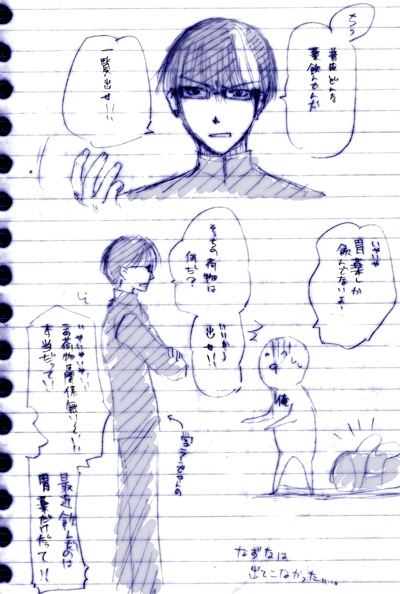 普段どんな
薬飲んでんだ
一覧出せ!!
いやいや
胃薬しか
飲んでないよ!
そっちの荷物は
何だ?
いいから
出せ!!
いやいやいや
この荷物関係無いし!
本当だって!!
俺
最近飲んだのは
胃薬だけだって!!
なずなは
出てこなかった…